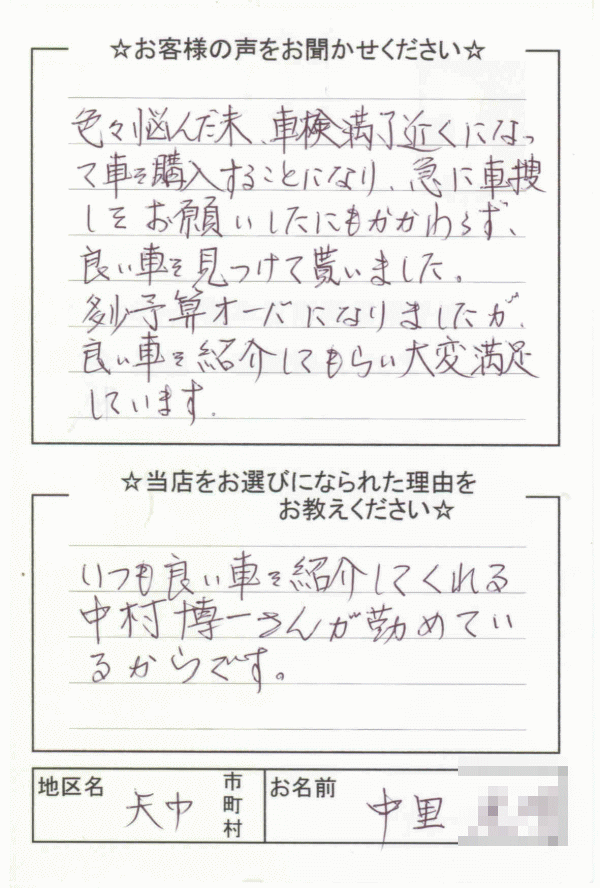 ☆お客様の声をお聞かせください☆
色々悩んだ末、車検満了近くになっ
て車を購入することになり、急に車捜
しをお願いしたにもかかわらず、
良い車を見つけて貰いました。
多少予算オーバになりましたが、
良い車を紹介してもらい大変満足
しています.
☆当店をお選びになられた理由を
お教えください☆
いつも良い車を紹介してくれる
中村博一さんが勤めてい
るからです。
地区名 天中 市町村
お名前 中里